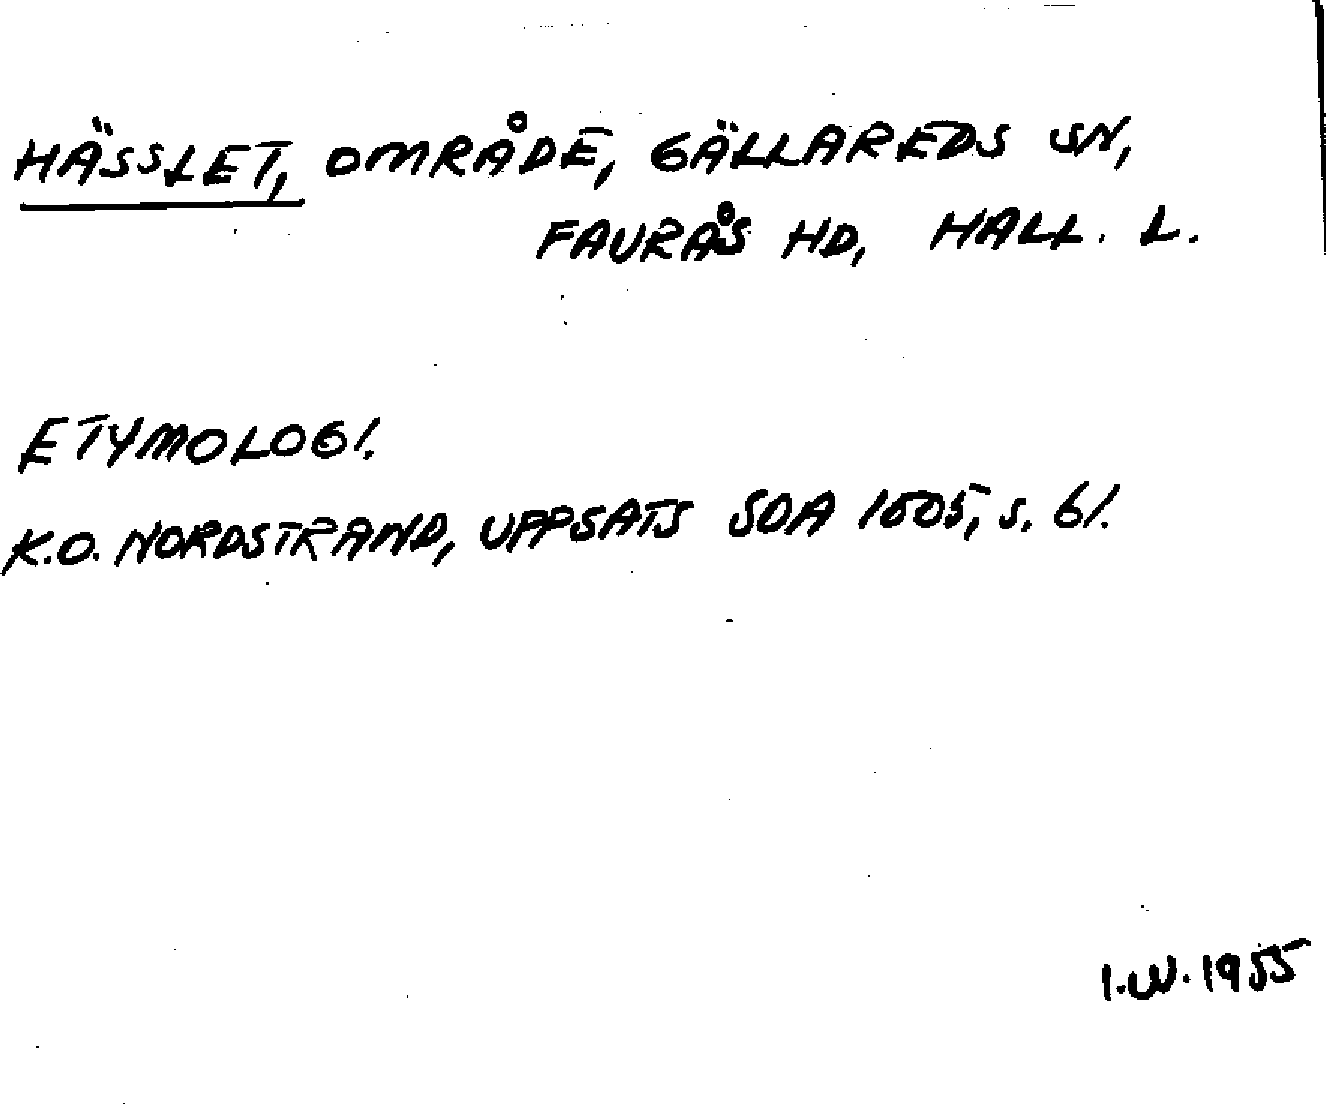 HÄSSLET, OMRÅDE, GÄLLAREDS SN,
FAURÅS HD, HALL. L.
ETYMOLOGI.
K.O. NORDSTRAND, UPPSATS SOA 1505, s. 61.
I.W. 1955